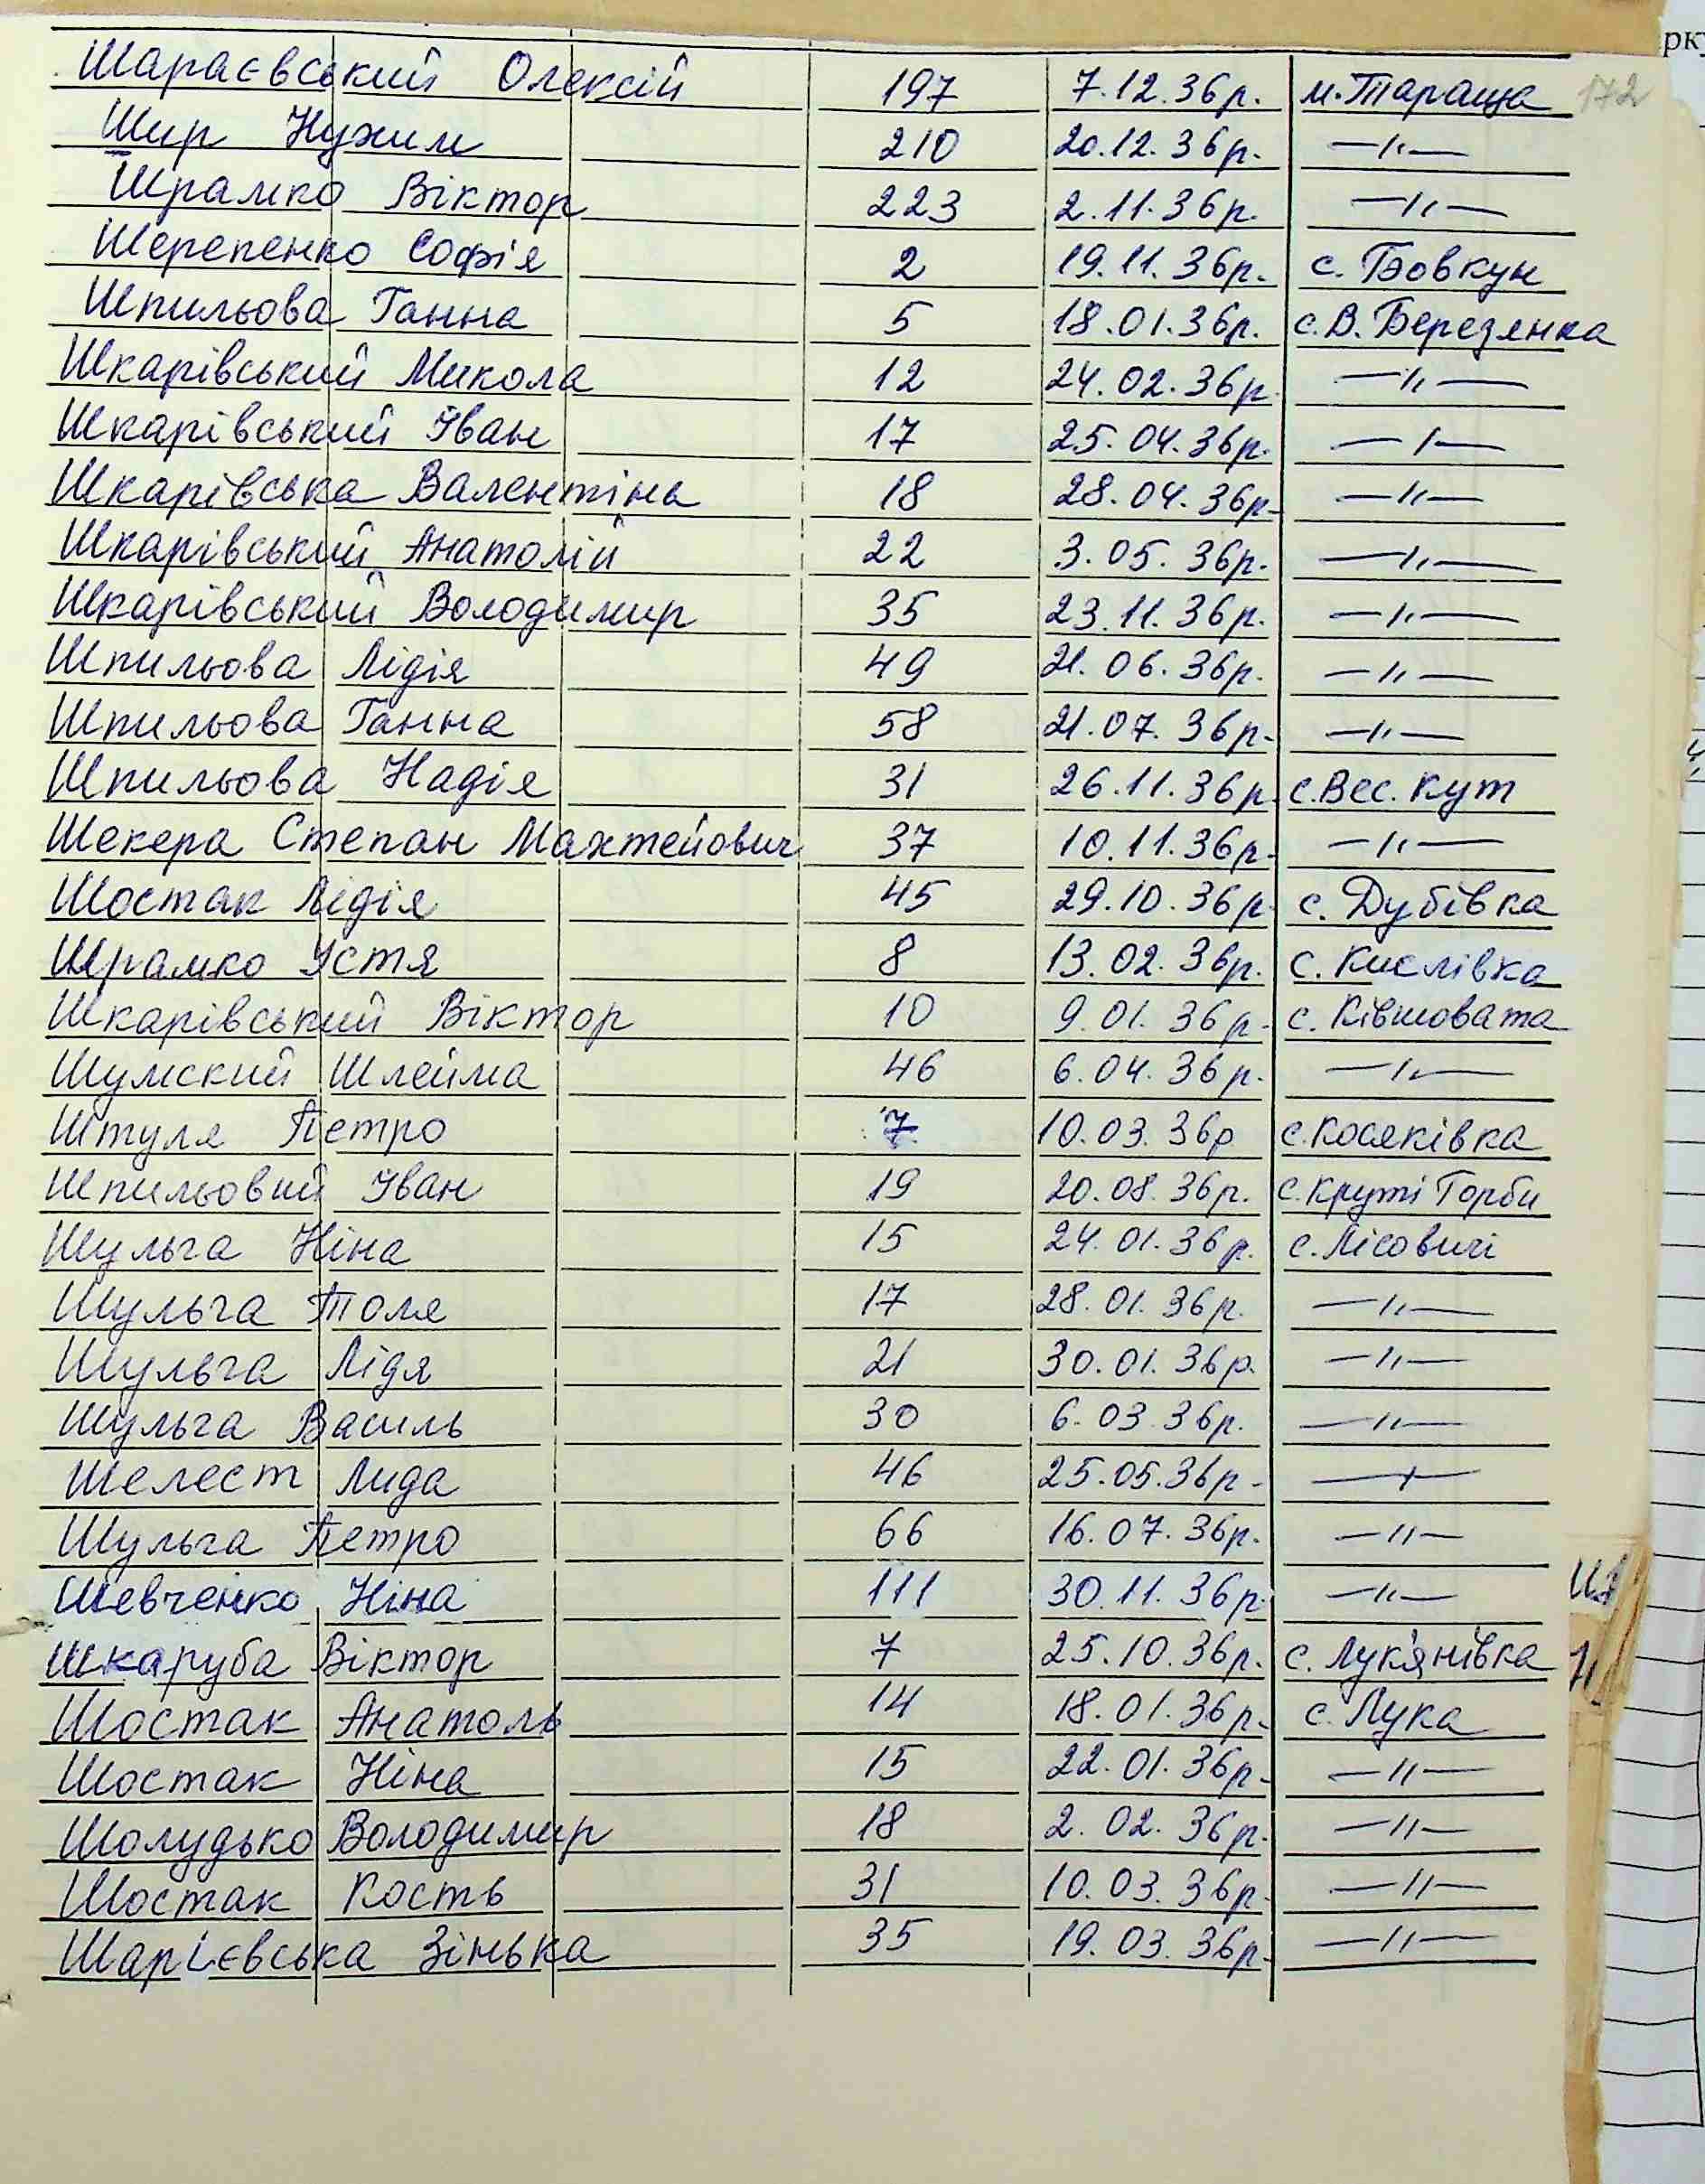 Шараєвський Олексій 197 7.12.36р. м. Тараща 172
Шир Нухим 210 20.12.36р. —"—
Шрамко Віктор 223 2.11.36р. —"—
Шерепенко Софія 2 19.11.36р. с. Бовкун
Шпильова Ганна 5 18.01.36р. с. В. Березянка
Шкарівський Микола 12 24.02.36р. —"—
Шкарівський Іван 17 25.04.36р. —"—
Шкарівська Валентіна 18 28.04.36р. —"—
Шкарівський Анатолій 22 3.05.36р. —"—
Шкарівський Володимир 35 23.11.36р. —"—
Шпильова Лідія 49 21.06.36р. —"—
Шпильова Ганна 58 21.07.36р. —"—
Шпильова Надія 31 26.11.36р. с. Вес. Кут
Шекера Степан Махтейович 37 10.11.36р. —"—
Шостак Лідія 45 29.10.36р. с. Дубівка
Шрамко Устя 8 13.02.36р. с. Кислівка
Шкарівський Віктор 10 9.01.36р. с. Ківшовата
Шумский Шлейма 46 6.04.36р. —"—
Штуля Петро 7 10.03.36р с. Косяківка
Шпильовий Іван 19 20.08.36р. с. Круті Горби
Шульга Ніна 15 24.01.36р. с. Лісовичі
Шульга Толя 17 28.01.36р. —"—
Шульга Лідя 21 30.01.36р. —"—
Шульга Василь 30 6.03.36р. —"—
Шелест Лида 46 25.05.36р. —"—
Шульга Петро 66 16.07.36р. —"—
Шевченко Ніна 111 30.11.36р. —"—
Шкаруба Віктор 7 25.10.36р. с. Лук'янівка
Шостак Анатоль 14 18.01.36р. с. Лука
Шостак Ніна 15 22.01.36р. —"—
Шолудько Володимир 18 2.02.36р. —"—
Шостак Кость 31 10.03.36р. —"—
Шарієвська Зінька 35 19.03.36р. —"—